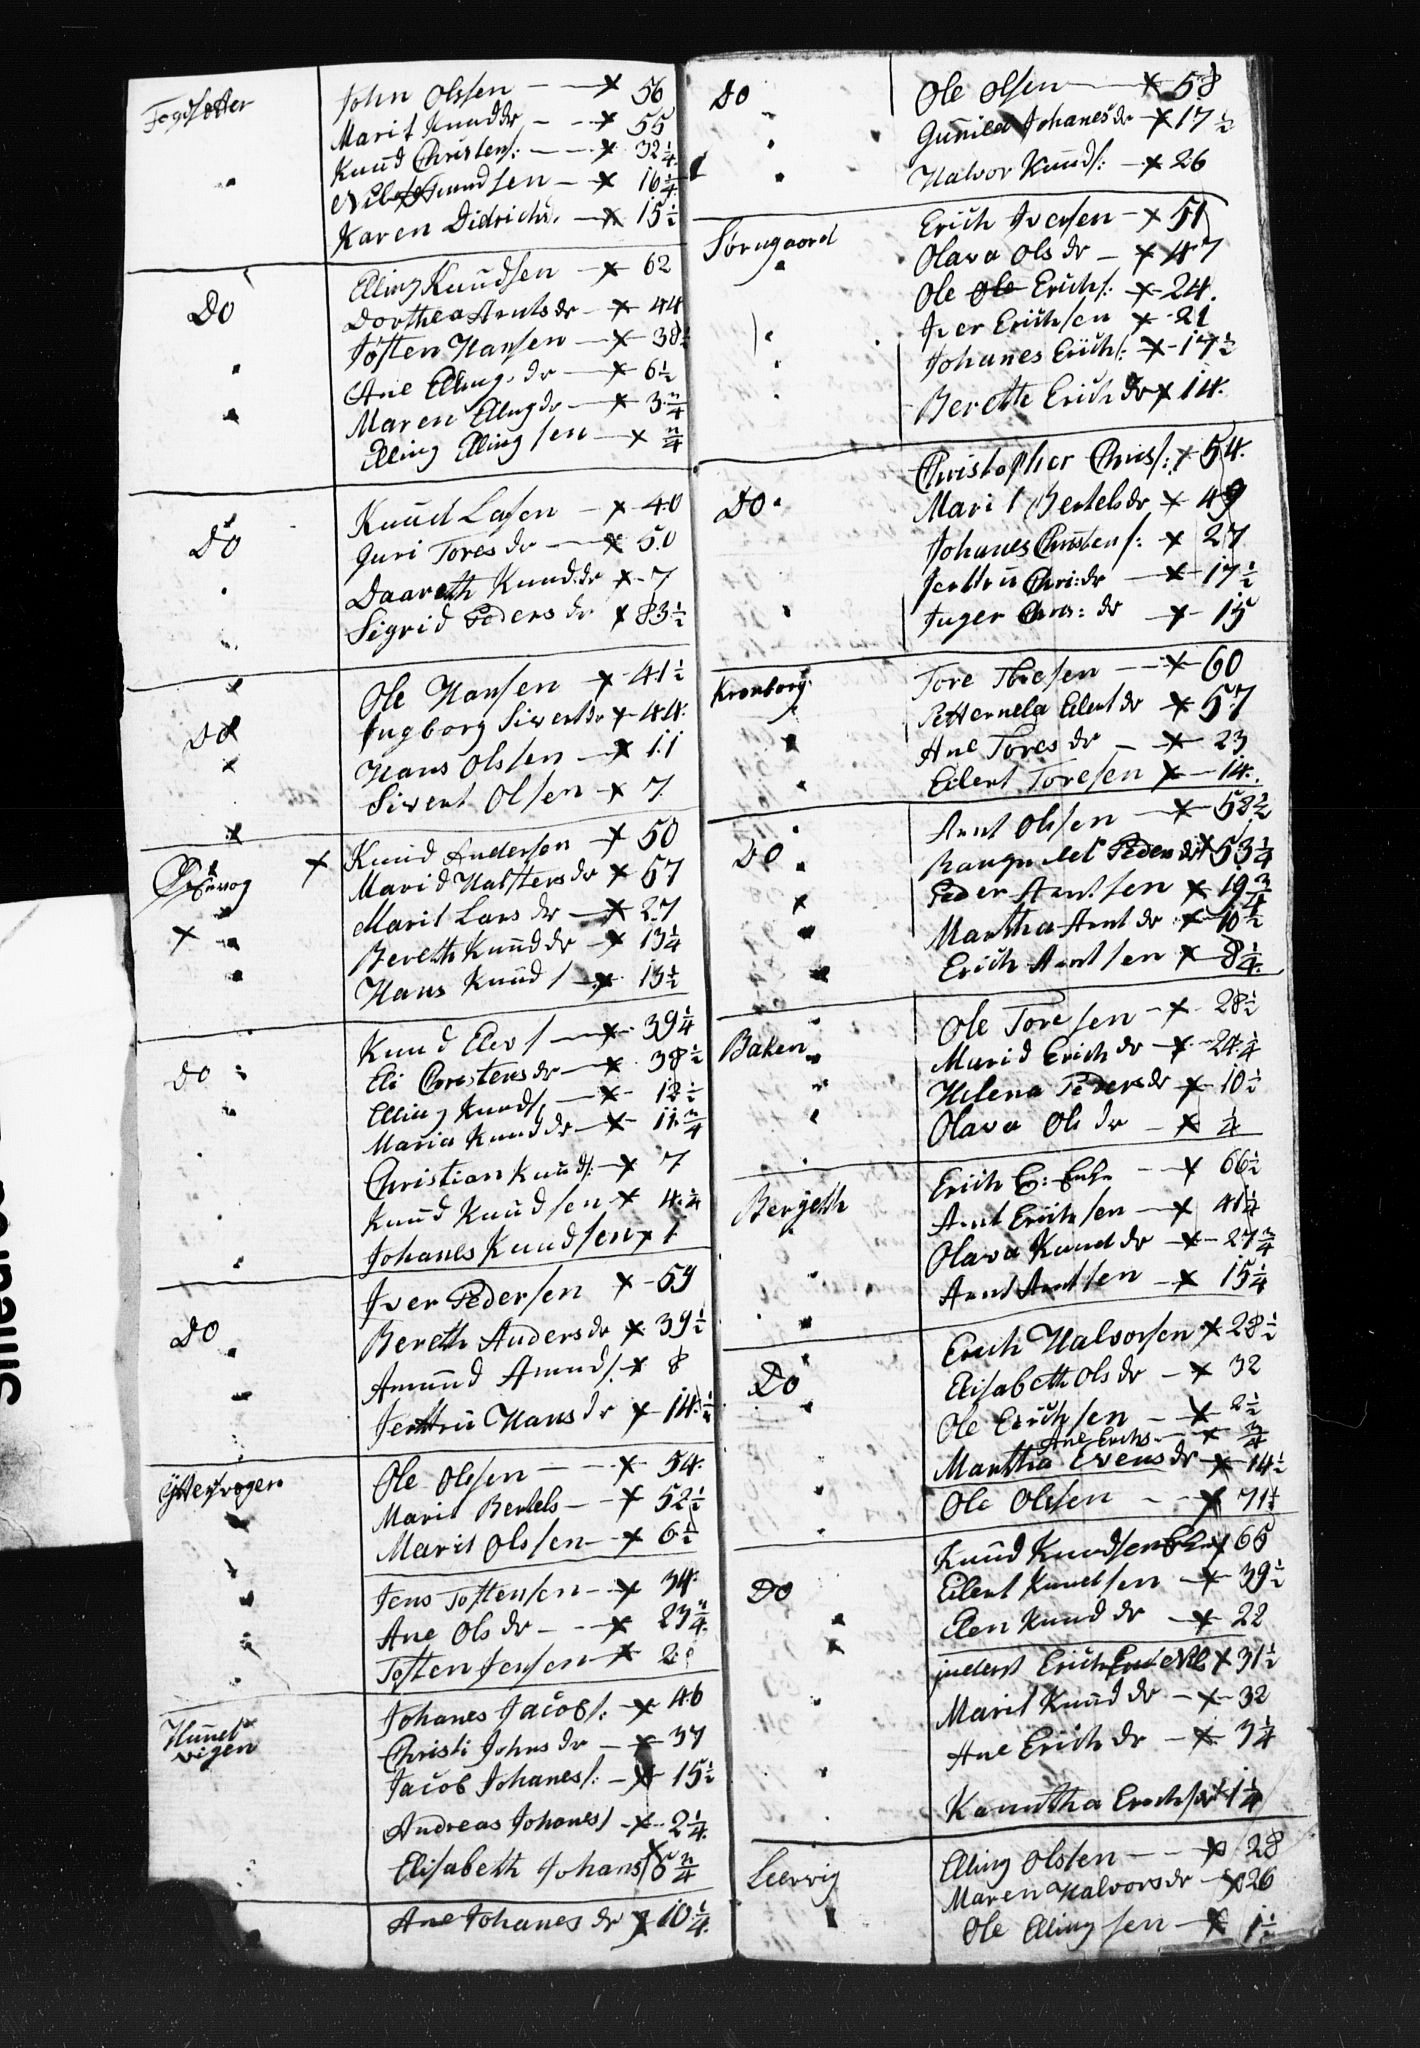 John Olssen - - x 56
Marit Knudsdr - - x 55
Knud Christens: - - x 32 1/4
Karen Didrichs. - x 15 1/2
Do
Elling Knudsen - x 62
Dorthea Arntsdr - x 44
Josten Hansen - x 38 1/2
Ane Elling. dr - x 6 1/2
Maren Ellingdr - x 3 3/4
Elling Ellingsen - x 3/4
Do
Knud Lasen - x 40
Guri Toresdr - x 50
Daareth Knud.dr x - 7
Sigrid Pedersdr x 83 1/2
Do
Ole Hansen x - 41 1/2
Ingborg Sivertdr x - 44
Hans Olssen - x 11
Sivert Olsen - x 7
x Knud Andersen - x 50
Marid Halstensdr x 57
x Marit Larsdr - x 27
Bereth Knuddr - x 13 1/4
Hans Knuds - x 13 1/2
Do
Knud Elevs - x - 39 1/4
Eli Christensdr - x 38 1/2
Elling Knuds - x - 12 1/2
Maria Knuddr - x - 11 3/4
Christian Knuds: - x 7
Knud Knudsen x 4 1/4
Johanes Knudsen x 1
Do
Iver Pedersen x - 59
Bereth Andersdr x 39 1/2
Amund Amunds. x 8
Jertru Hansdr x - 14 1/2
Yttervogen
Ole Olssen - - x - 54
Marit Bertels - - x 52 1/2
Marit Olssen - x 6 1/2
Jens Tostensen - x 34
Ane Olsdr - - x 23 3/4
Tosten Jensen - x 2
Hunel
vigen
Johanes Jacobs: - x 46
Christi Johnsdr - x - 37
Jacob Johanes: - x 15 1/2
Andreas Johanes - x - 2 1/4
Elisabeth Johans x 6 3/4
Ane Johanesdr x 10 1/4
Do
Ole Olsen - x - 58
Gunild Johanesdr x 17 1/2
Halvor Knuds: - x 26
Sørngaard
Erich Iversen - x 51
Olava Olsdr - x 47
Ole Ole Erichs: - x - 24
Iver Erichsen x - 21
Johanes Erichs: x - 17 1/2
Berethe Erichdr x 14
Do
Christopher Chris: x 54
Marit Bertelsdr x - 49
Johanes Christens: x 27
Jertru Chri:dr - x - 17 1/2
Inger Chris: dr - x - 15
Kronborg
Tore Thoresen - - x - 60
Petternela Eilertdr - x 57
Ane Toresdr - x - 23
Eilert Toresen x - 14
Do
Arnt Olssen - x - 58 1/2
Rangnild Pedersdr x 53 1/4
Peder Arntsen x 19 3/4
Martha Arntdr x 10 1/2
Erich Arntsen x - 8 1/4
Baken
Ole Toresen - x - 28 1/2
Marid Erichdr - x - 24 1/4
Helena Pedersdr x - 10 1/2
Olava Olsdr - x 1/4
Bergeth
Erich - x 66 1/2
Arnt Erichsen - x 41 1/4
Olava Knuddr - x - 27 3/4
Arnt Arntsen - x 15 1/4
Do
Erich Halvorsen x 28 1/2
Elisabeth Olsdr - x 32
Ole Erichsen - x - 2 1/2
Ane Erichs - x 3/4
Martha Evensdr - x - 14 1/2
Ole Olssen - - x 71 1/2
Do
Knud Knudsen x 65
Eilert Knudsen - x 39 1/2
Elen Knuddr - x 22
inderst Erich x 31 1/2
Marit Knuddr - x - 32
Ane Erichdr - x 3 1/4
x 1 1/4
Leervig
Elling Olssen - - x 28
Maren Halvorsdr - x 26
Ole Ellingsen - x 1 1/2